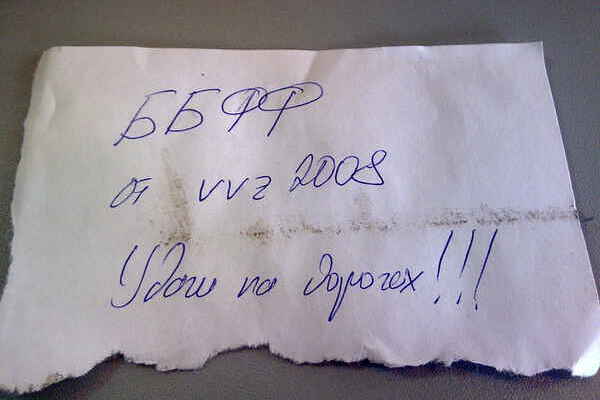 ББФФ
от vvz 2008
Удачи на дорогах!!!